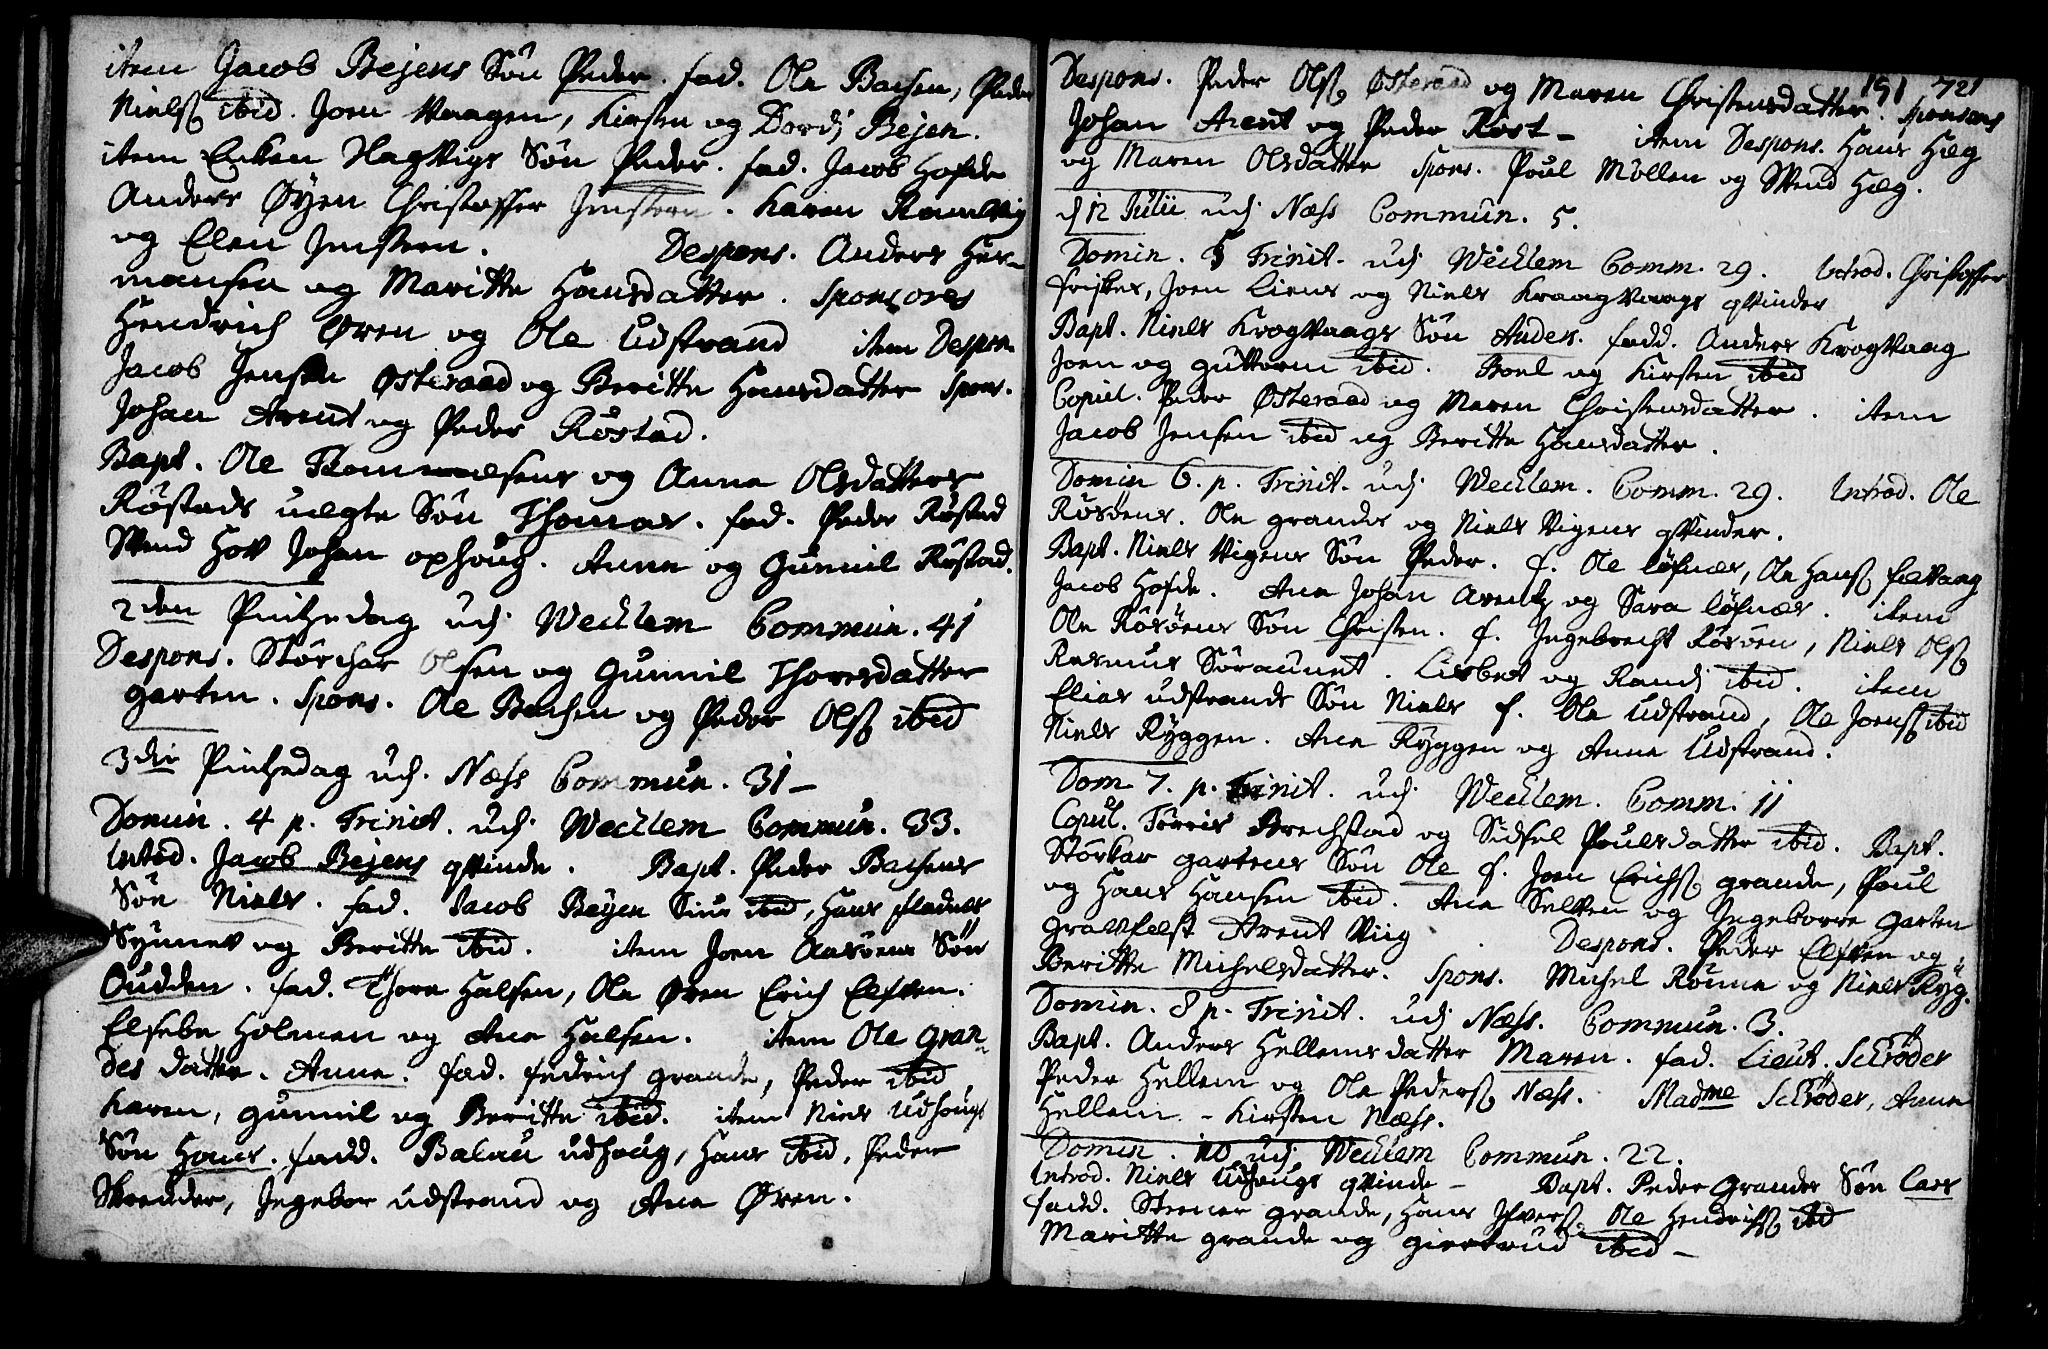 item Jacob Bejens Søn Peder. fad. Ole Bachen, Peder
Nielsß ibid. Joen Waagen, Kirsten og Dordj Bejen.
item Encken Hagvigs Søn Peder. fad. Jacob Hofde
Anders Øyen Christoffer Jmstern. Karen
og Elen Jmstern. Despons. Anders Her-
mansen og Maritte Hansdatter. Sponsores
Hendrich Øren og Ole Udstrand item Despon.
Jacob Jensen Østeraad og Beritte Hansdatter Spons.
Johan Arent og Peder Røstad.
Bapt. Ole Thommesens og Anna Olsdatters
Røstads uægte Søn Thomas. fad. Peder Røstad
Svend Hov Johan ophoug. Anna og Gunnil Røstad.
2den Pintzedag udj Wechlem Commun. 41
Despons. Størchar Olsen og Gunnil Thoresdatter
garten. Spons. Ole Bachen og Peder Olsß ibid
3die Pintzedag udj. Næss Commun. 31 -
Domin. 4 p. Trinit. udj Wechlem Commun. 33.
Introd. Jacob Bejens qvinde. Bapt. Peder Bachens
Søn Niels. fad. Jacob Beyen Siur ibid, Hans fladnes
Synnev og Beritte ibid. item Joen Aasøens Søn
Oudden. fad. Thore Halsen, Ole Øren Erich Elften.
Elsebe Holmen og Ane Halsen. item Ole gran-
des datter. Anna. fad. fedrich grande, Peder ibid,
Karen, gunnil og Beritte ibid. item Niels Udhougs
Søn Hans. fadd. Balzu udhoug, Hans ibid, Peder
Skredder, Jngebor udstrand og Ane Øren.
191 721
Despons. Peder Olsß Østeraad og Maren Christensdatter. Sponsores
Johan Arent og Peder Røst - item Despons. Hans Hæg
og Maren Olsdatter Spons. Poul Møllen og Svend Hæg.
d 12 Julii udj Næss Commun. 5.
Domin. 5 Trinit. udj Wechlem Comm. 29. Introd. Christoffer
friskes, Joen Liens og Niels Kraagvaags qvinder
Bapt. Niels Krogvaags Søn Anders. fadd. Anders Krogvaag
Joen og guttorm ibid. Boel og Kirsten ibid
Copul. Peder Østeraad og Maren Christensdatter. item
Jacob Jensen ibid og Beritte Hansdatter.
Domin 6. p. Trinit. udj Wechlem. Comm. 29. Introd. Ole
Røsøens. Ole grandes og Niels Vigens qvinder.
Bapt. Niels Vigens Søn Peder. f. Ole løfnæs, Ole Hansß
Jacob Hofde. Ane Johan Arentz og Sara løfnæs. item
Ole Røsøens Søn Christen. f. Jngebrecht Røsøen, Niels Olsß
Rasmus Søraunet. Lisbet og Randj ibid. item
Elias udstrands Søn Niels f. Ole Udstrand, Ole Joensß ibid
Niels Ryggen. Ane Ryggen og Anne Udstrand.
Dom 7. p. Trinit. udj Wechlem. Comm. 11
Copul. Torris Brechstad og Sidsel Poulsdatter ibid. Bapt.
Størkar gartens Søn Ole f. Joen Erichsß grande, Poul
og Hans Hansen ibid. Ane Selven og Jngeborre garten
gravfæst Arent Viig. Despons. Peder Elften og
Beritte Michelsdatter. Spons. Michel Rønne og Niels Ryg.
Domin. 8 p. Trinit. udj Næss. Commun. 3.
Bapt. Anders Hellems datter Maren. fad. Lieut. Schrøder
Peder Hellem og Ole Pedersß Næss. Madme Schrøder, Anne
Hellem - Kirsten Næss.
Domin. 10 udj Wechlem Commun. 22.
Introd. Niels Udhougs qvinde - Bapt. Peder Grandes Søn Lars
fadd. Steener grande, Hans Jversß Ole Hendrichsß ibid
Maritte grande og giertrud ibid -